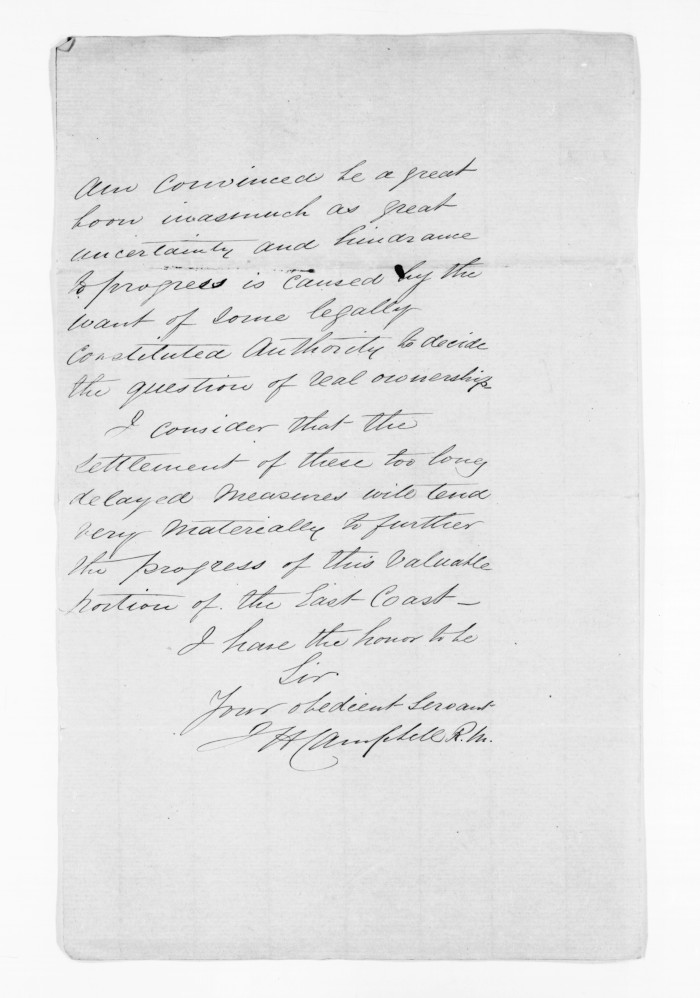 am convinced be a great
boon inasmuch as great
uncertainty and hindrance
to progress is caused by the
want of some legally
constituted Authority to decide
the question of real ownership
I consider that the
settlement of these too long
delayed measures will tend
very materially to further
the progress of this valuable
portion of the East Coast —
I have the honor to be
Sir
Your obedient Servant
J H Campbell R.M.